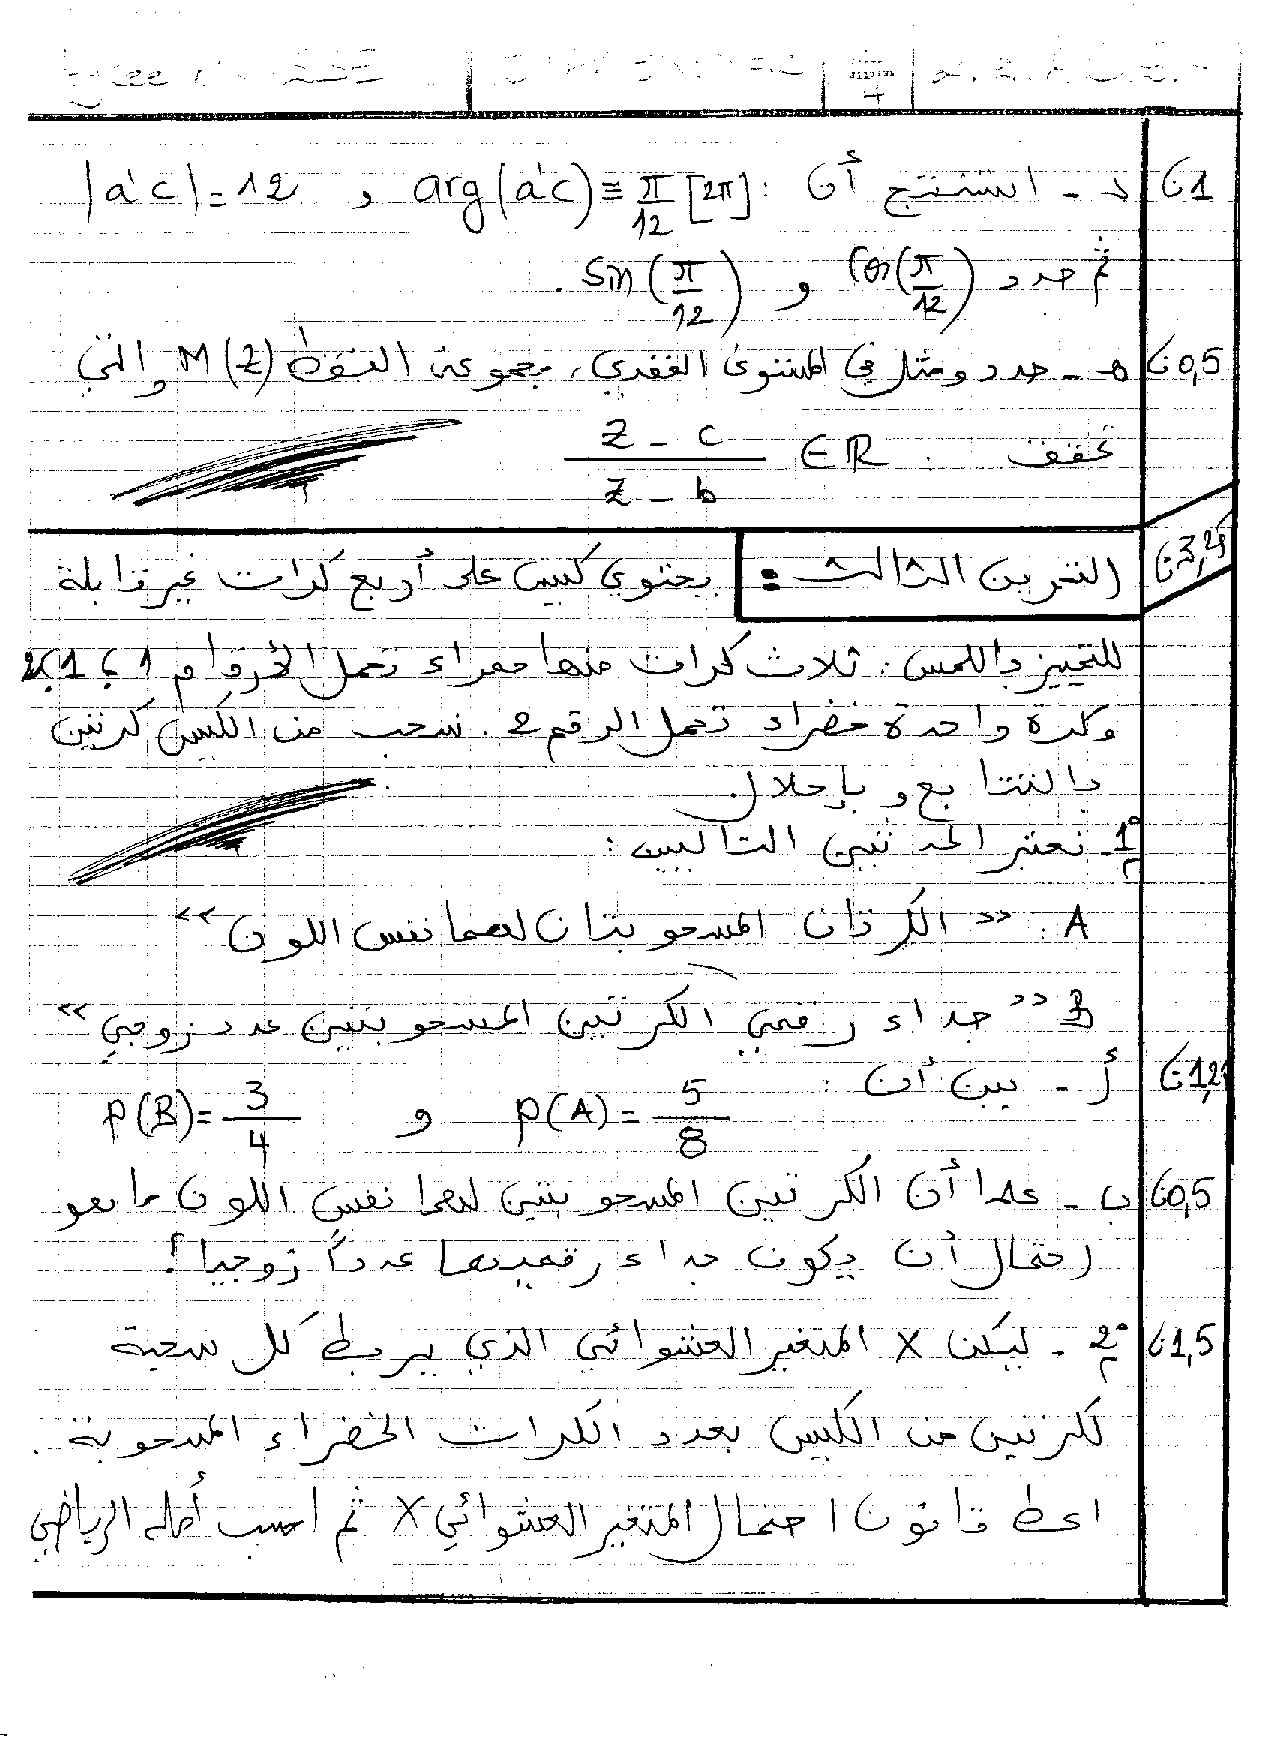 1ن د - استنتج أن : arg(a'c) ≡ π/12 [2π] و |a'c| = 12
ثم حدد cos(π/12) و sin(π/12) .
0,5ن ه - حدد ومثل في المستوى العقدي، مجموعة النقط M(z) والتي
تحقق (z - c)/(z - b) ∈ ℝ .
التمرين الثالث : يحتوي كيس على أربع كرات غير قابلة
للتمييز باللمس : ثلاث كرات منها حمراء تحمل الأرقام 1 ؛ 1 ؛ 2
وكرة واحدة خضراء تحمل الرقم 2 . نسحب من الكيس كرتين
بالتتابع وبإحلال.
1° - نعتبر الحدثين التاليين :
A : « الكرتان المسحوبتان لهما نفس اللون »
B « جداء رقمي الكرتين المسحوبتين عدد زوجي »
أ - بين أن : p(A) = 5/8 و p(B) = 3/4
0,5ن ب - علما أن الكرتين المسحوبتين لهما نفس اللون ما هو
احتمال أن يكون جداء رقميهما عدداً زوجيا ؟
1,5ن 2° - ليكن X المتغير العشوائي الذي يربط كل سحبة
لكرتين من الكيس بعدد الكرات الخضراء المسحوبة .
اعط قانون احتمال المتغير العشوائي X ثم احسب أمله الرياضي